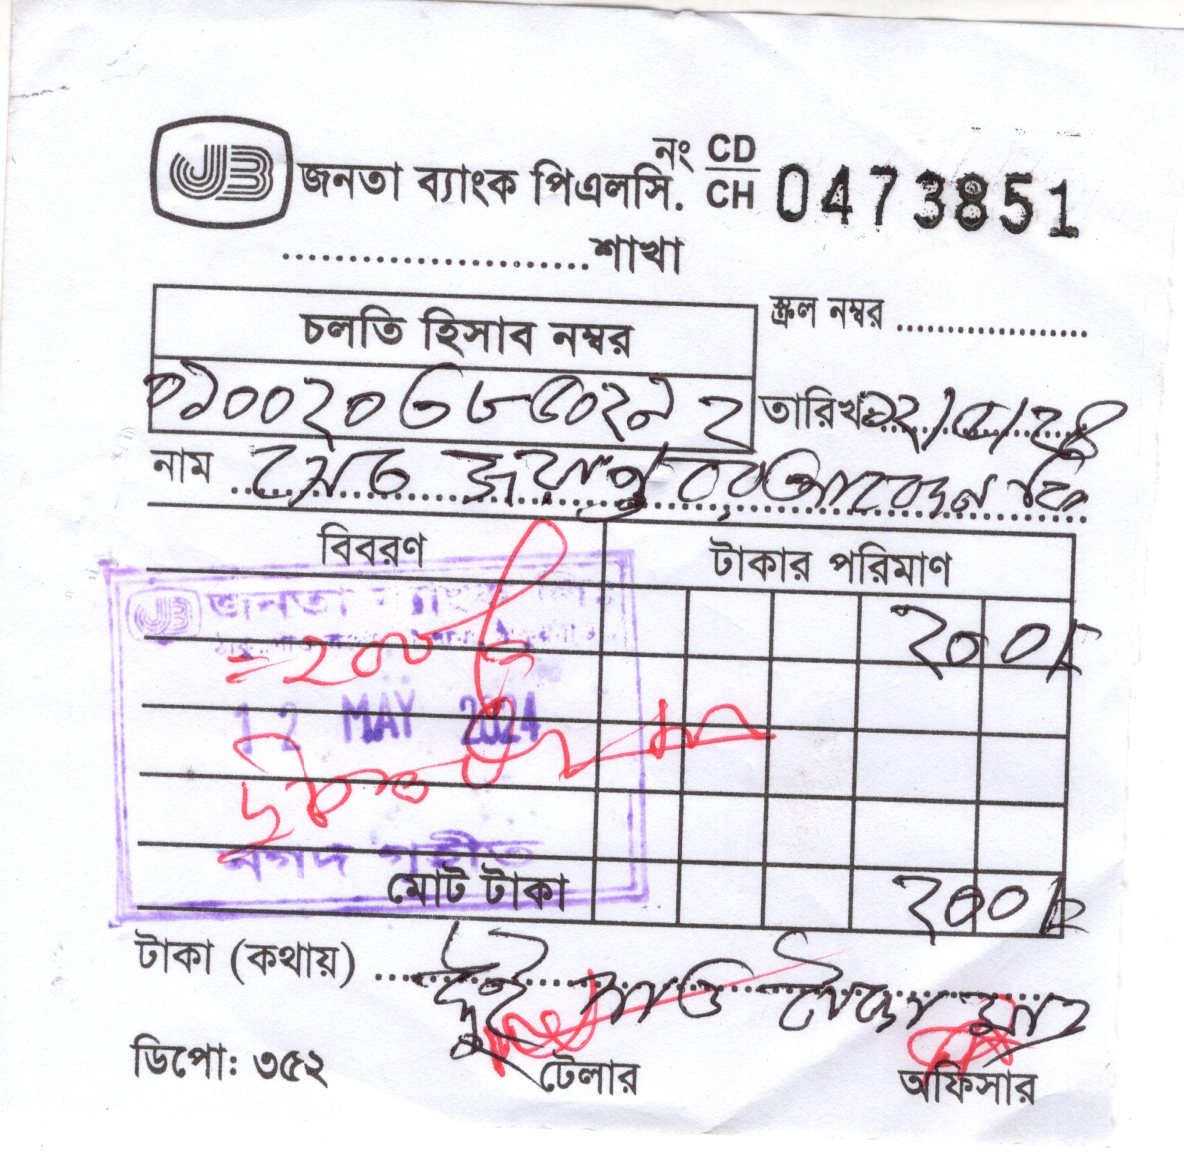 JB জনতা ব্যাংক পিএলসি.
নং CD/CH 0473851
....................শাখা
স্ক্রল নম্বর ................
চলতি হিসাব নম্বর
তারিখ ১২/৫/২৪
নাম
বিবরণ টাকার পরিমাণ
জনতা ব্যাংক
২০০/-
=২০০/-
12 MAY 2024
নগদ গৃহীত
মোট টাকা ২০০/-
টাকা (কথায়) দুই শত টাকা মাত্র
ডিপো: ৩৫২ টেলার অফিসার